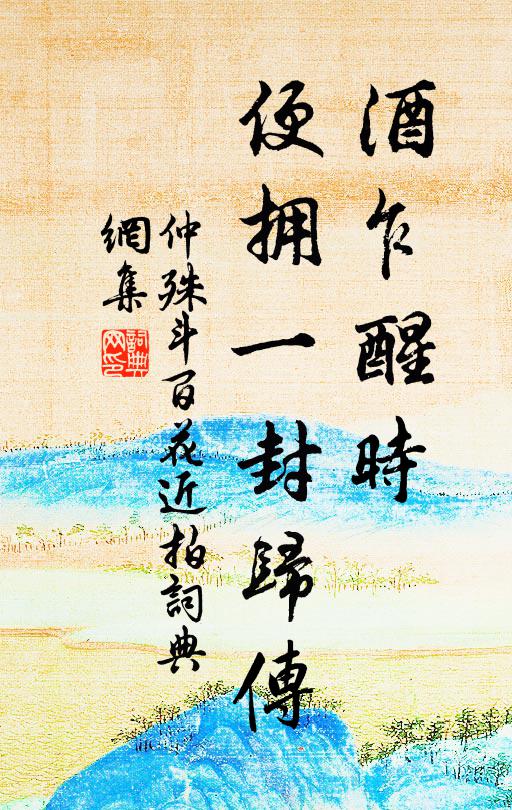 酒乍醒時
便拥一封歸傳
仲殊斗百花近拍詞典
網集
詞典
网印